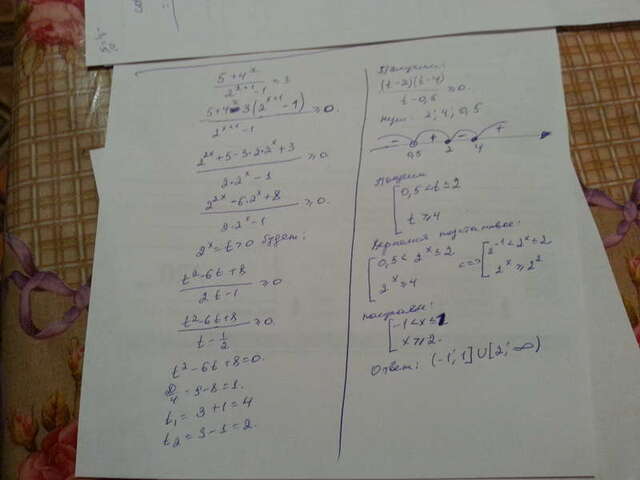 5+4^x / 2^{x+1}-1 = 3
5+4^x-3(2^{x+1}-1) / 2^{x+1}-1 ≥0.
2^{2x}+5-3·2·2^x+3 / 2·2^x-1 ≥0.
2^{2x}-6·2^x+8 / 2·2^x-1 ≥0.
2^x=t>0 будет:
t²-6t+8 / 2t-1 ≥0
t²-6t+8 / t-1/2 ≥0.
t²-6t+8=0.
D/4=9-8=1.
t₁=3+1=4
t₂=3-1=2.
Получим:
(t-2)(t-4) / t-0,5 ≥0.
Нули: 2; 4; 0,5
- + - +
0,5 2 4
Получим
[ 0,5<t≤2
t≥4
Вернёмся подстановкой:
[ 0,5<2^x≤2 <=> [ 2^{-1}<2^x≤2
2^x≥4 2^x≥2²
получаем:
[ -1<x≤1
x≥2.
Ответ: (-1; 1]∪[2; ∞)